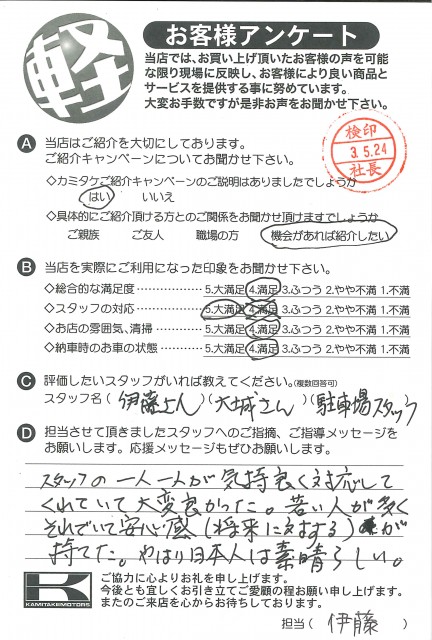 軽
お客様アンケート
当店では、お買い上げ頂いたお客様の声を可能
な限り現場に反映し、お客様により良い商品と
サービスを提供する事に努めています。
大変お手数ですが是非お声をお聞かせ下さい。
A 当店はご紹介を大切にしております。
ご紹介キャンペーンについてお聞かせ下さい。
検印
3.5.24
社長
◇カミタケご紹介キャンペーンのご説明はありましたでしょうか
はい いいえ
◇具体的にご紹介頂ける方とのご関係をお聞かせ頂けますでしょうか
ご親族 ご友人 職場の方 機会があれば紹介したい
B 当店を実際にご利用になった印象をお聞かせ下さい。
◇総合的な満足度………………5.大満足 4.満足 3.ふつう 2.やや不満 1.不満
◇スタッフの対応………………5.大満足 4.満足 3.ふつう 2.やや不満 1.不満
◇お店の雰囲気、清掃…………5.大満足 4.満足 3.ふつう 2.やや不満 1.不満
◇納車時のお車の状態…………5.大満足 4.満足 3.ふつう 2.やや不満 1.不満
C 評価したいスタッフがいれば教えてください。(複数回答可)
スタッフ名(伊藤さん)(大城さん)(駐車場スタッフ
D 担当させて頂きましたスタッフへのご指摘、ご指導メッセージを
お願いします。応援メッセージもぜひお願いします。
スタッフの一人一人が気持良く対応して
くれていて大変良かった。若い人が多く
それでいて安心感(将来に対する)が
持てた。やはり日本人は素晴らしい。
K
KAMITAKEMOTORS
ご協力に心よりお礼を申し上げます。
今後とも宜しくお引き立てご愛顧の程お願い申し上げます。
またのご来店を心からお待ちしております。
担当(伊藤)